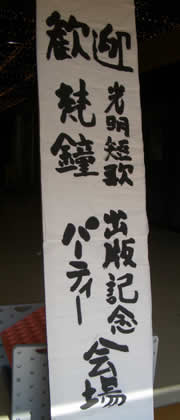 歓迎
光明短歌
梵鐘
出版記念
パーティー
会場